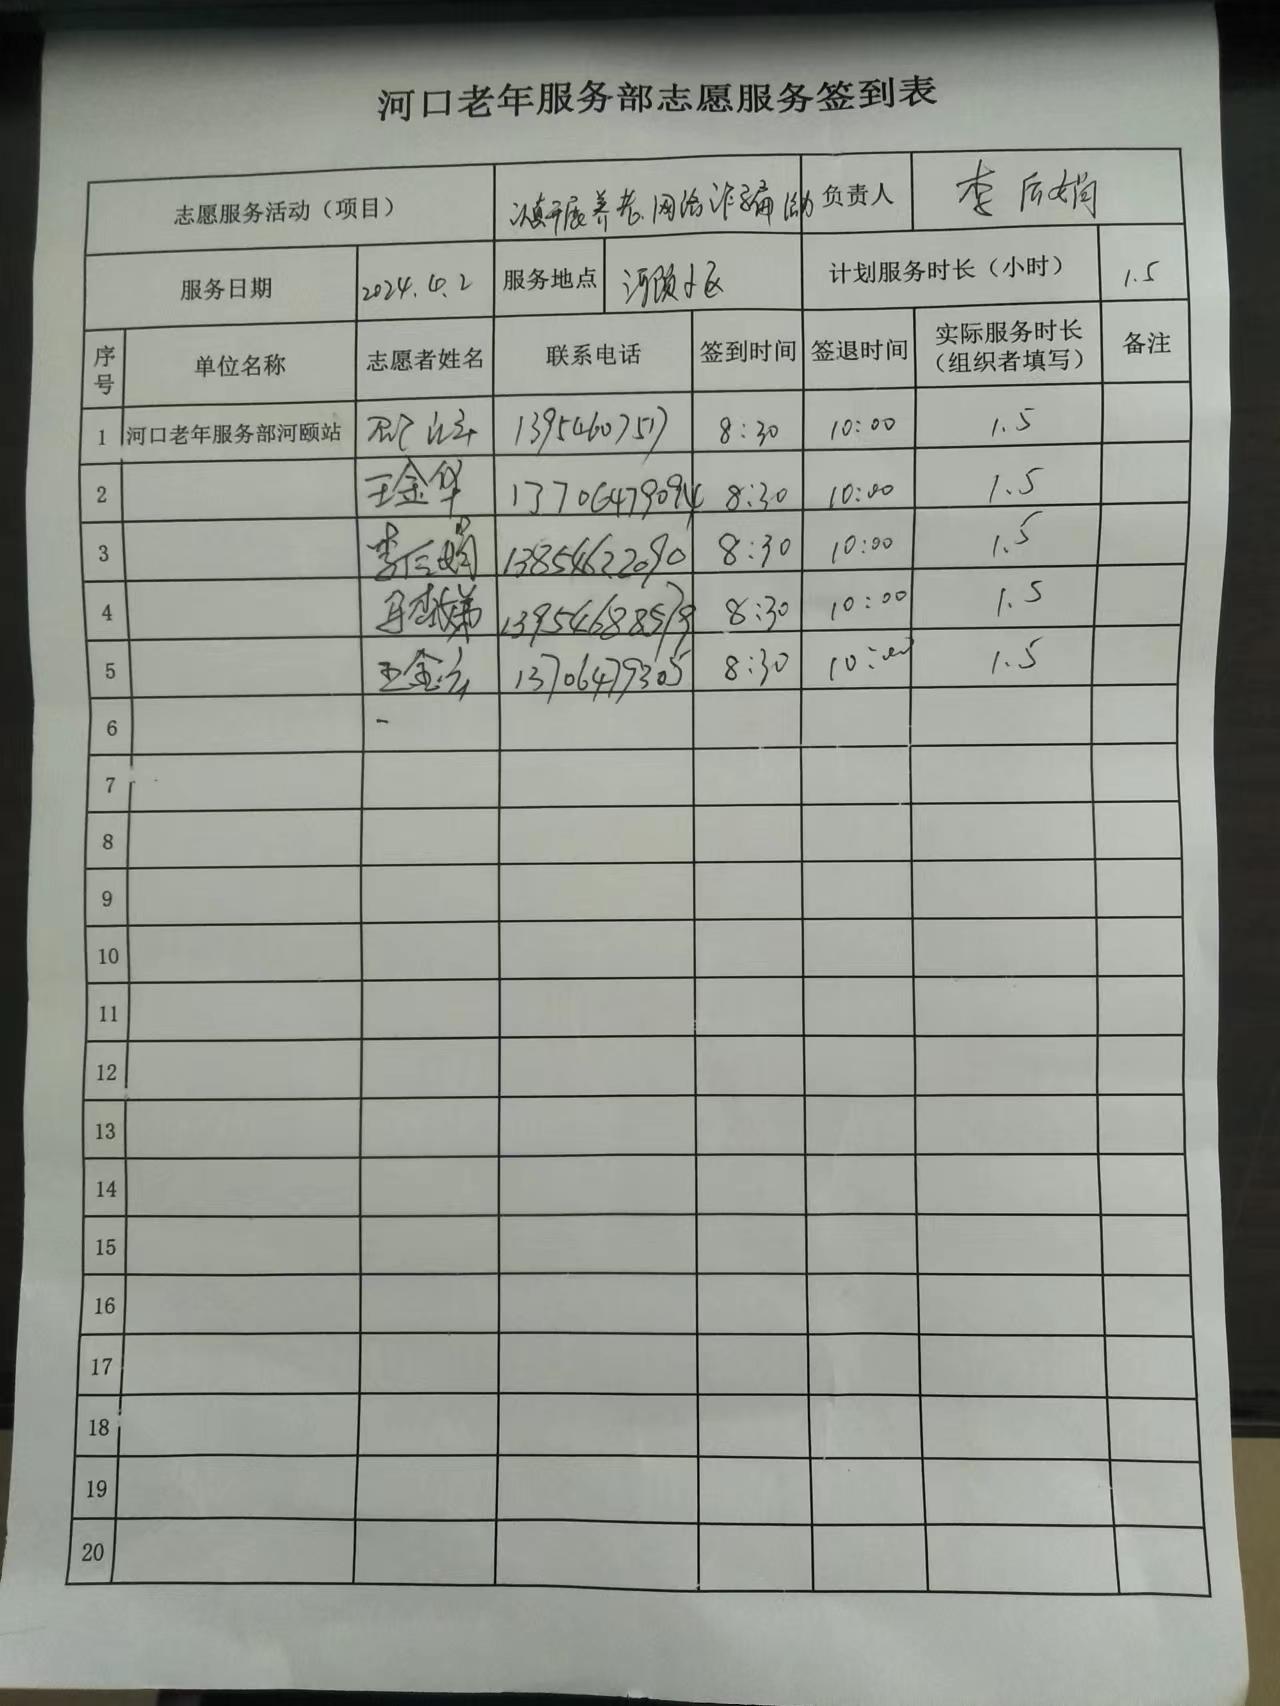 河口老年服务部志愿服务签到表
志愿服务活动（项目） 开展养老、网络诈骗活动 负责人 李后娟
服务日期 2024.4.2 服务地点 河颐小区 计划服务时长（小时） 1.5
序号 单位名称 志愿者姓名 联系电话 签到时间 签退时间 实际服务时长（组织者填写） 备注
1 河口老年服务部河颐站 1395460757 8:30 10:00 1.5
2 王金华 13706479094 8:30 10:00 1.5
3 李后娟 13854622090 8:30 10:00 1.5
4 13954688579 8:30 10:00 1.5
5 王金 13706479305 8:30 10:00 1.5
6
7
8
9
10
11
12
13
14
15
16
17
18
19
20